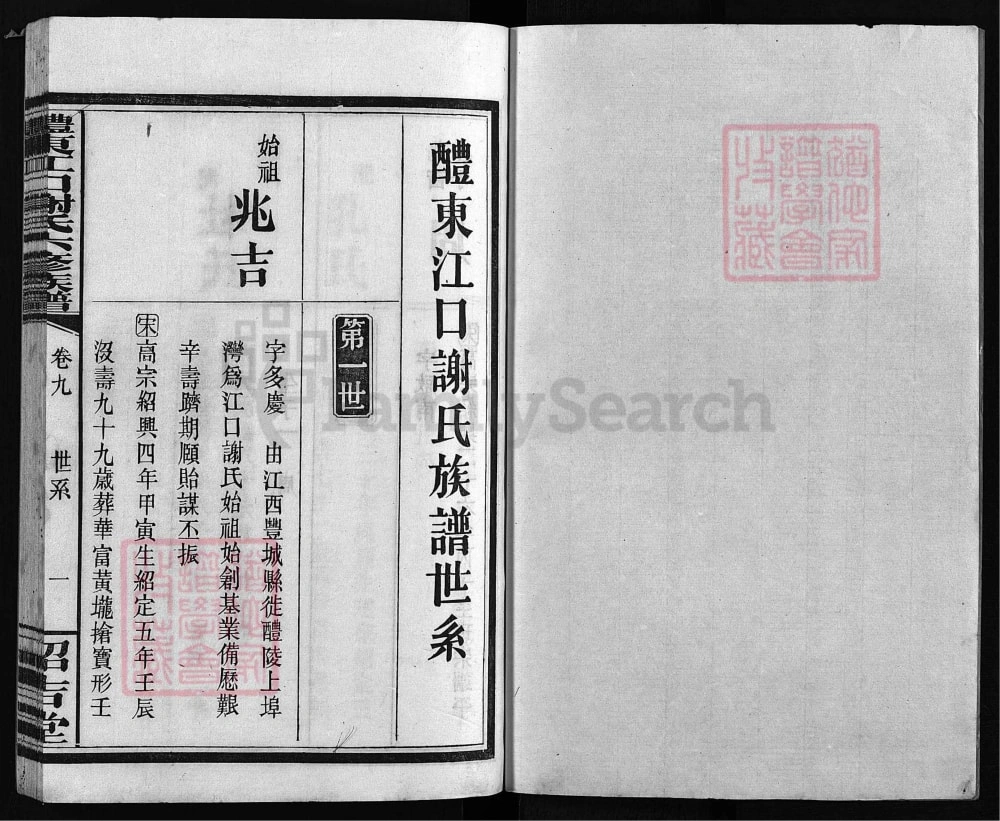 醴東江口謝氏族譜世系
第一世
始祖
兆吉
字多慶 由江西豐城縣徙醴陵上埠
灣爲江口謝氏始祖始創基業備歷艱
辛壽躋期頤貽謀丕振
宋高宗紹興四年甲寅生紹定五年壬辰
沒壽九十九歲葬華富黃壠搶寶形壬
醴東江口謝氏六修族譜
卷九
世系
一
紹吉堂
FamilySearch
譜學會
特藏
譜學會
特藏